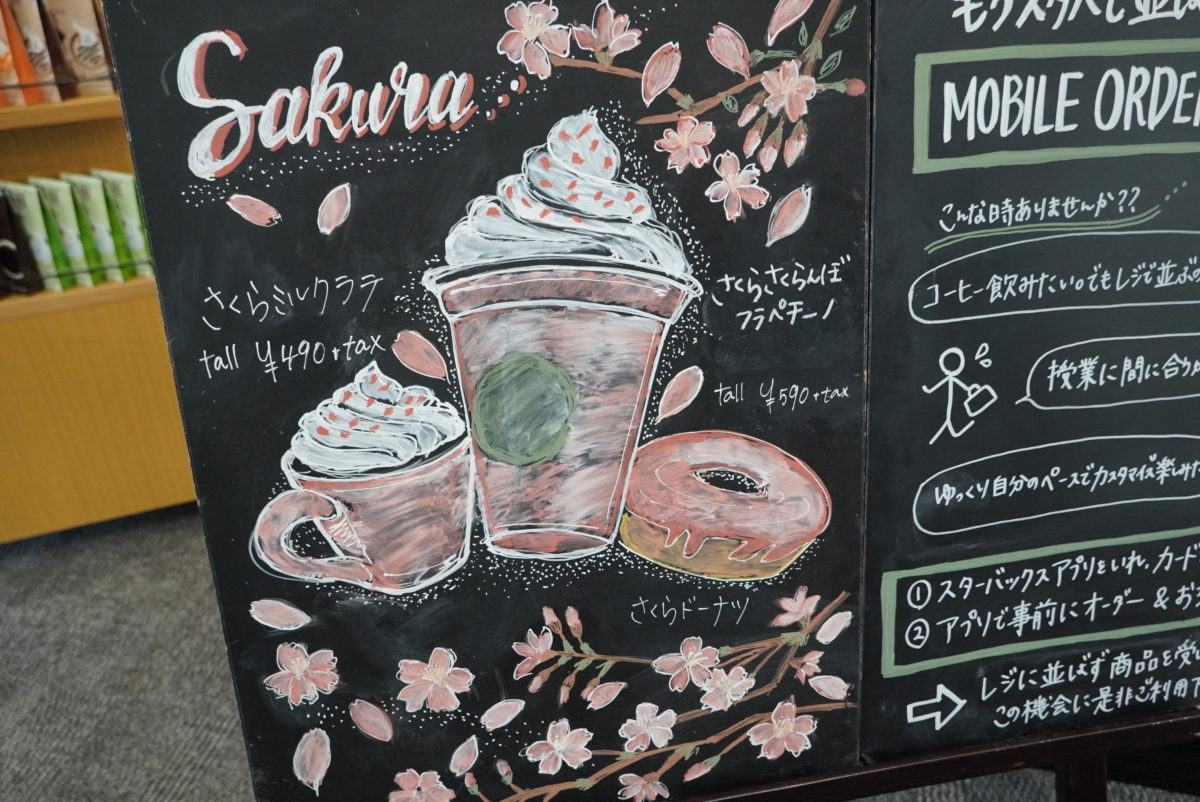 Sakura
さくらミルクラテ
tall ¥490+tax
さくらさくらんぼ
フラペチーノ
tall ¥590+tax
さくらドーナツ
MOBILE ORDER
こんな時ありませんか??
コーヒー飲みたい。でもレジで並ぶ
授業に間に合
ゆっくり自分のペースでカスタマイズ楽しみた
① スターバックスアプリをいれ、カード
② アプリで事前にオーダー & お
レジに並ばず商品を受
この機会に是非ご利用下